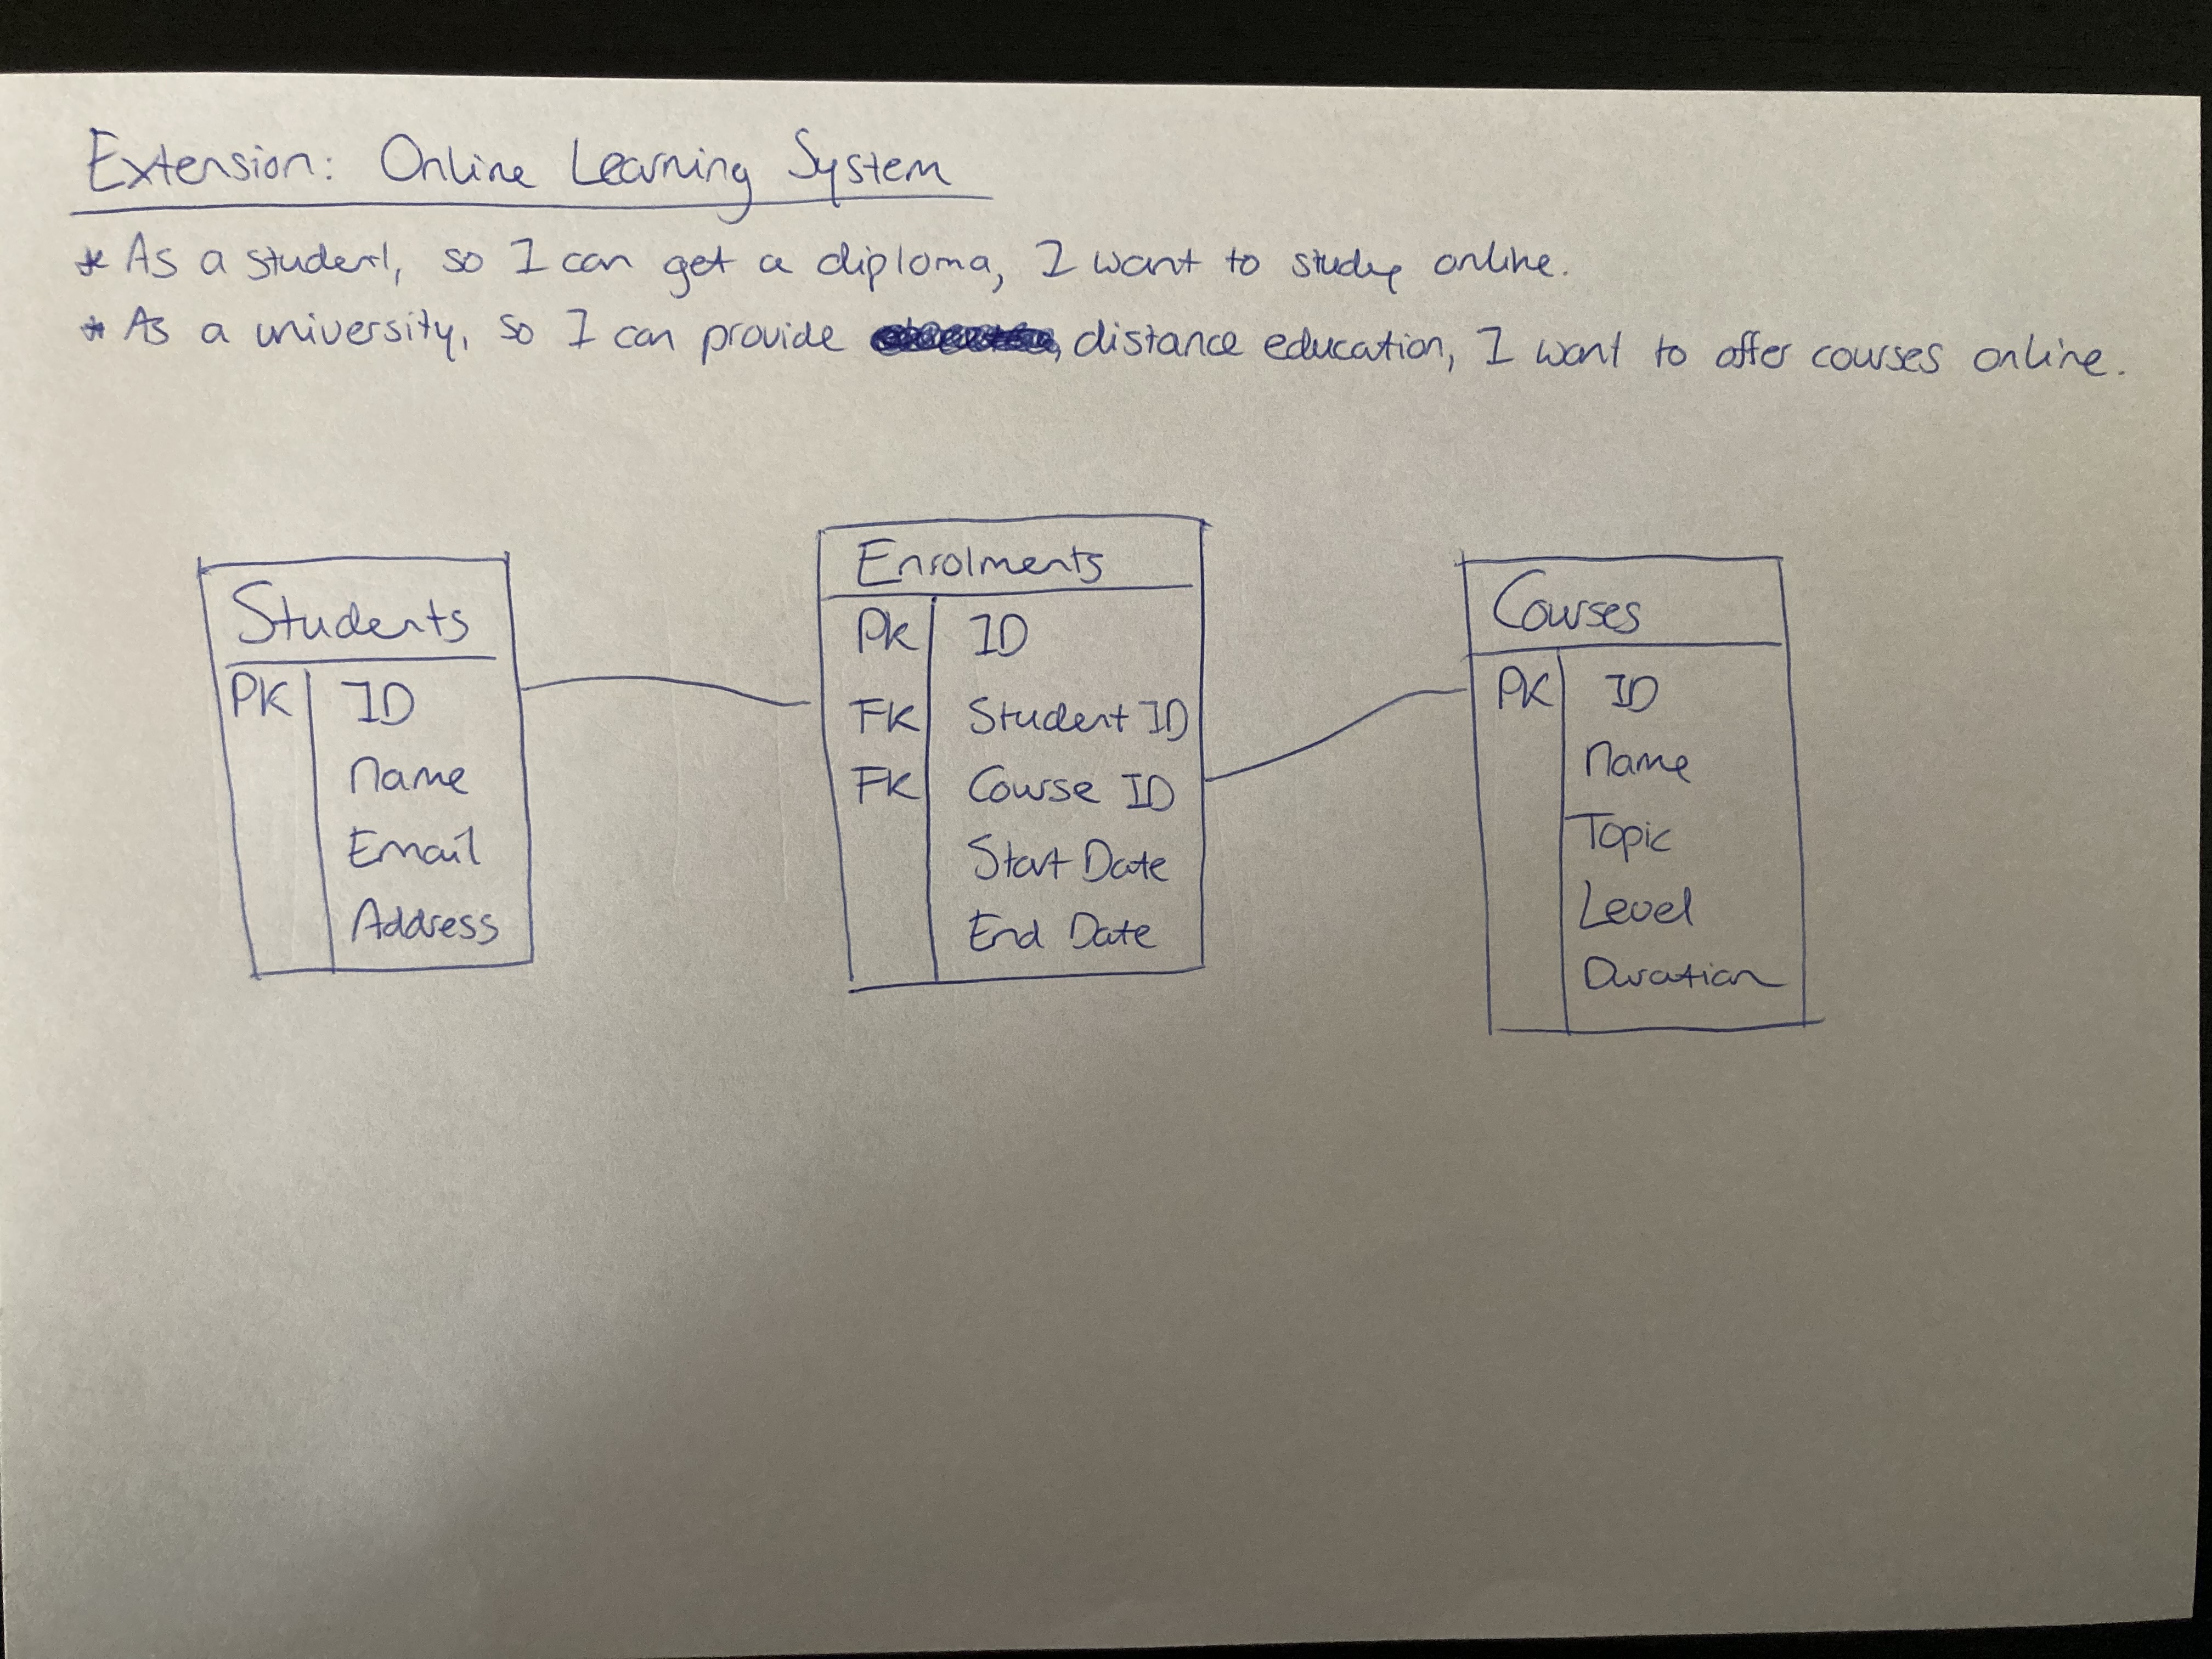 Extension: Online Learning System
* As a student, so I can get a diploma, I want to study online.
* As a university, so I can provide distance education, I want to offer courses online.
Students
PK ID
Name
Email
Address
Enrolments
PK ID
FK Student ID
FK Course ID
Start Date
End Date
Courses
PK ID
Name
Topic
Level
Duration